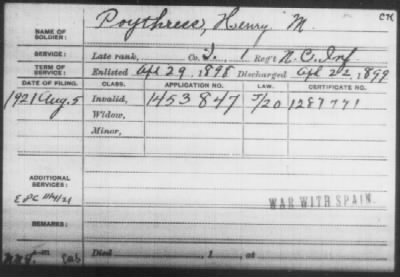 CH
NAME OF SOLDIER: Poythress, Henry M.
SERVICE: Late rank, Co. I. 1 Reg't N.C. Inf
TERM OF SERVICE: Enlisted Apl 29, 1898 Discharged Apl 22, 1899
DATE OF FILING. CLASS. APPLICATION NO. LAW. CERTIFICATE NO.
1921 Aug. 5 Invalid, 1453847 7/20 1287771
Widow,
Minor,
ADDITIONAL SERVICES:
WAR WITH SPAIN.
REMARKS:
Died , 1 , at